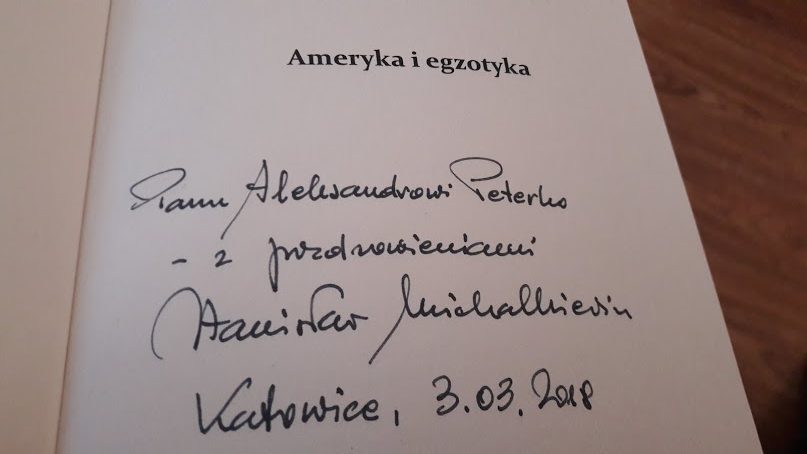 Ameryka i egzotyka
Panu Aleksandrowi Peterko
- z pozdrowieniami
Stanisław Michalkiewicz
Katowice, 3.03.2018